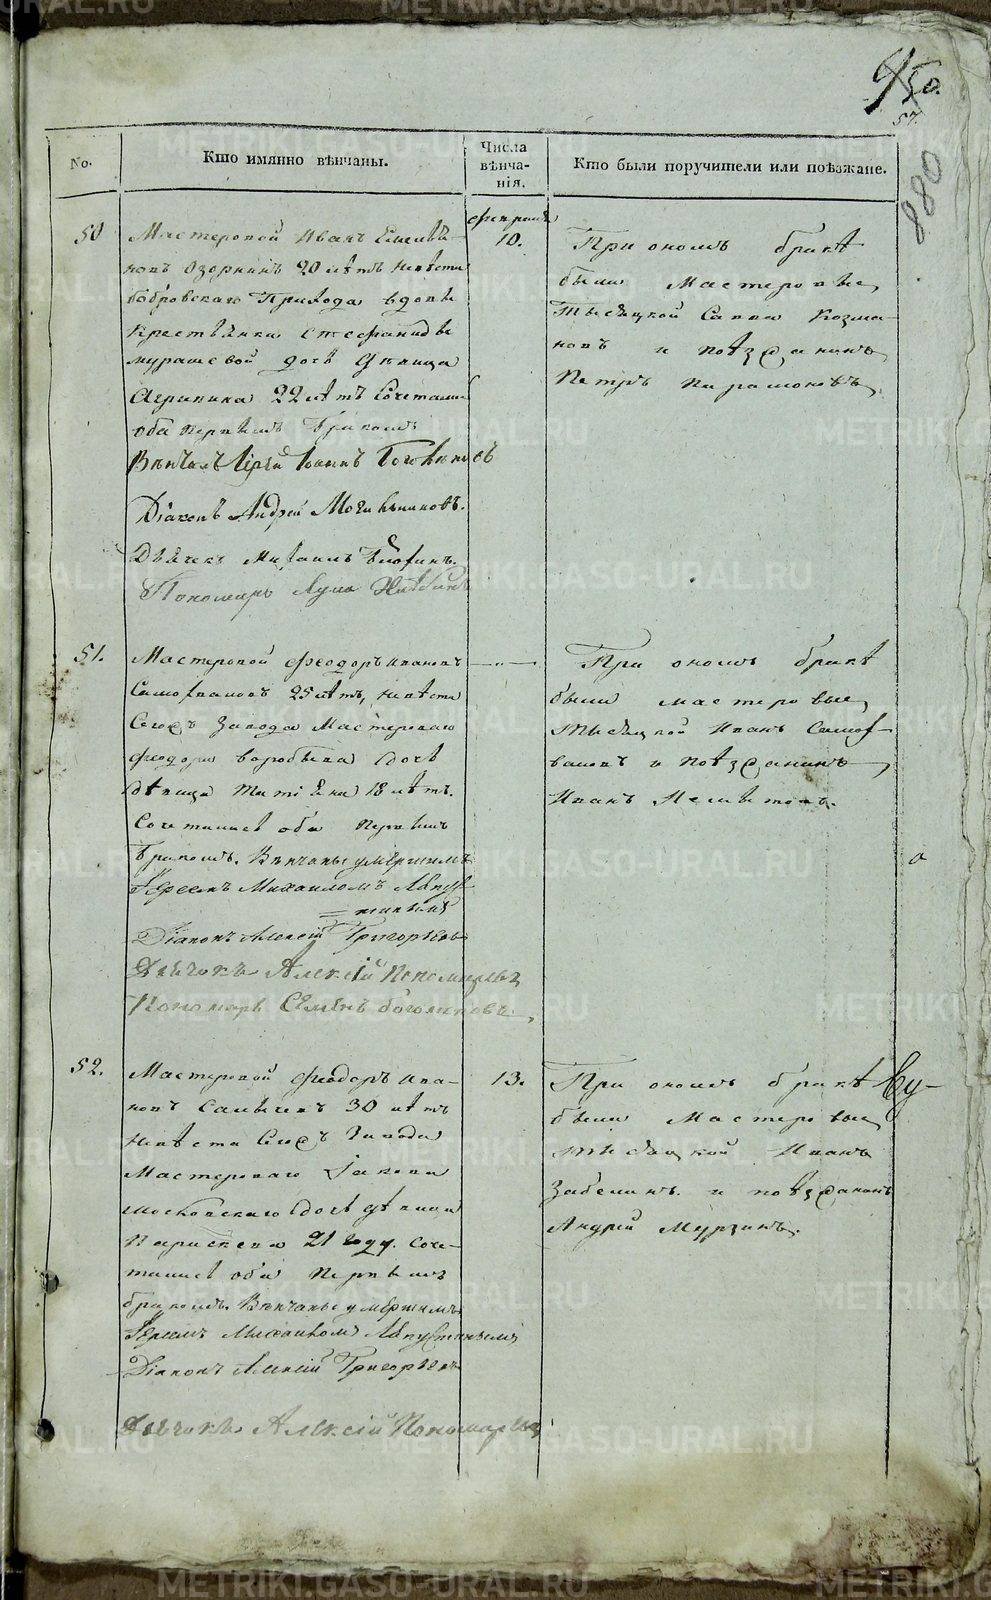 METRIKI.GASO-URAL.RU
50.
57.
880
No.
Кто имянно вѣнчаны.
Числа вѣнчанія.
Кто были поручители или поѣзжане.
февраля
50
Мастеровой Иванъ
10.
новъ Озорнинъ 20 лѣтъ невѣста
бобровскаго Прихода вдовы
Крестьянки Стефаниды
мурашевой дочь дѣвица
Агрипина 22 лѣтъ Сочетаны
оба первымъ бракомъ
Вѣнчалъ Іерей Іоаннъ
Діаконъ Андрей
Дьячекъ Михаилъ
Пономарь Лука
При ономъ бракѣ
были Мастеровые,
тысяцкой Савва Козма-
новъ и поѣзжанинъ
Петръ Парамоновъ
51.
Мастеровой Феодоръ Ивановъ
Самохваловъ 25 лѣтъ, невѣста
Сегожъ Завода Мастероваго
Феодора воробьева дочь
дѣвица Татіяна 18 лѣтъ.
Сочетаны оба первымъ
бракомъ. Вѣнчаны умершимъ
Іереемъ Михаиломъ Август
= иновымъ
Діаконъ Алексій Григорьевъ
Дьячокъ Алексій Пономаревъ
Пономарь Семенъ
— „ —
При ономъ бракѣ
были мастеровые,
тысяцкой Иванъ Самох-
валовъ и поѣзжанинъ
Иванъ
52.
Мастеровой Феодоръ Ива-
13.
новъ 30 лѣтъ
невѣста Сегожъ Завода
Мастероваго Іакова
московскаго дочь дѣвица
Парискева 21 году. Соче-
таны оба первымъ
бракомъ. Вѣнчаны умершимъ
Іереемъ Михаиломъ
Діаконъ Алексій Григорьевъ
Дьячокъ Алексій Пономаревъ
При ономъ бракѣ
были Мастеровые
тысяцкой Иванъ
Забелинъ. и поѣзжанинъ
Андрей Мурзинъ.